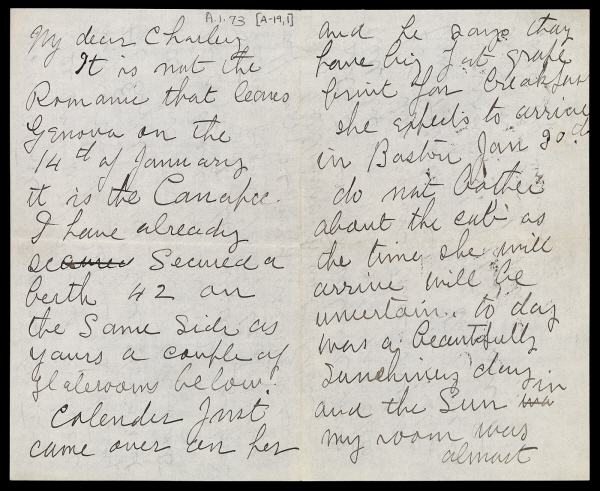 A.1.73 [A-19,1]
My dear Charley
It is not the
Romanic that leaves
Genova on the
14th of January
it is the Canopic.
I have already
secured Secured a
berth 42 on
the Same Side as
yours a couple of
Staterooms below.
Colender Just
came over on her
and he says they
have big fat grape
fruit for breakfast
she expects to arrive
in Boston Jan 30th.
do not bother
about the cab as
the time she will
arrive will be
uncertain.. to day
was a beautifully
Sunshiney day
and the Sun in
my room was
almost